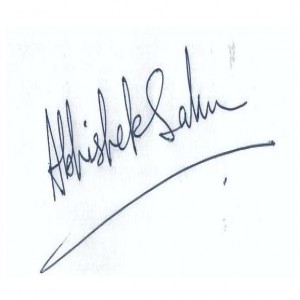 Abhishek Sahu